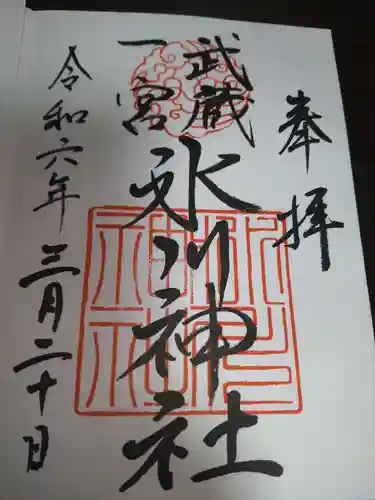 奉拝
武蔵
一宮
氷川神社
令和六年三月二十日